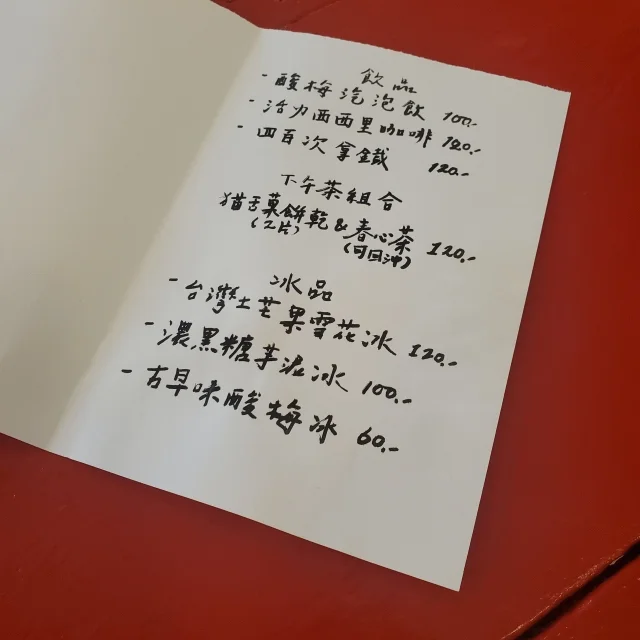 飲品
- 酸梅汽泡飲 100.-
- 活力西西里咖啡 120.-
- 四百次拿鐵 120.-
下午茶組合
貓舌菓餅乾 & 春心茶 120.-
(2片) (可回沖)
冰品
- 台灣土芒果雪花冰 120.-
- 濃黑糖芋泥冰 100.-
- 古早味酸梅冰 60.-